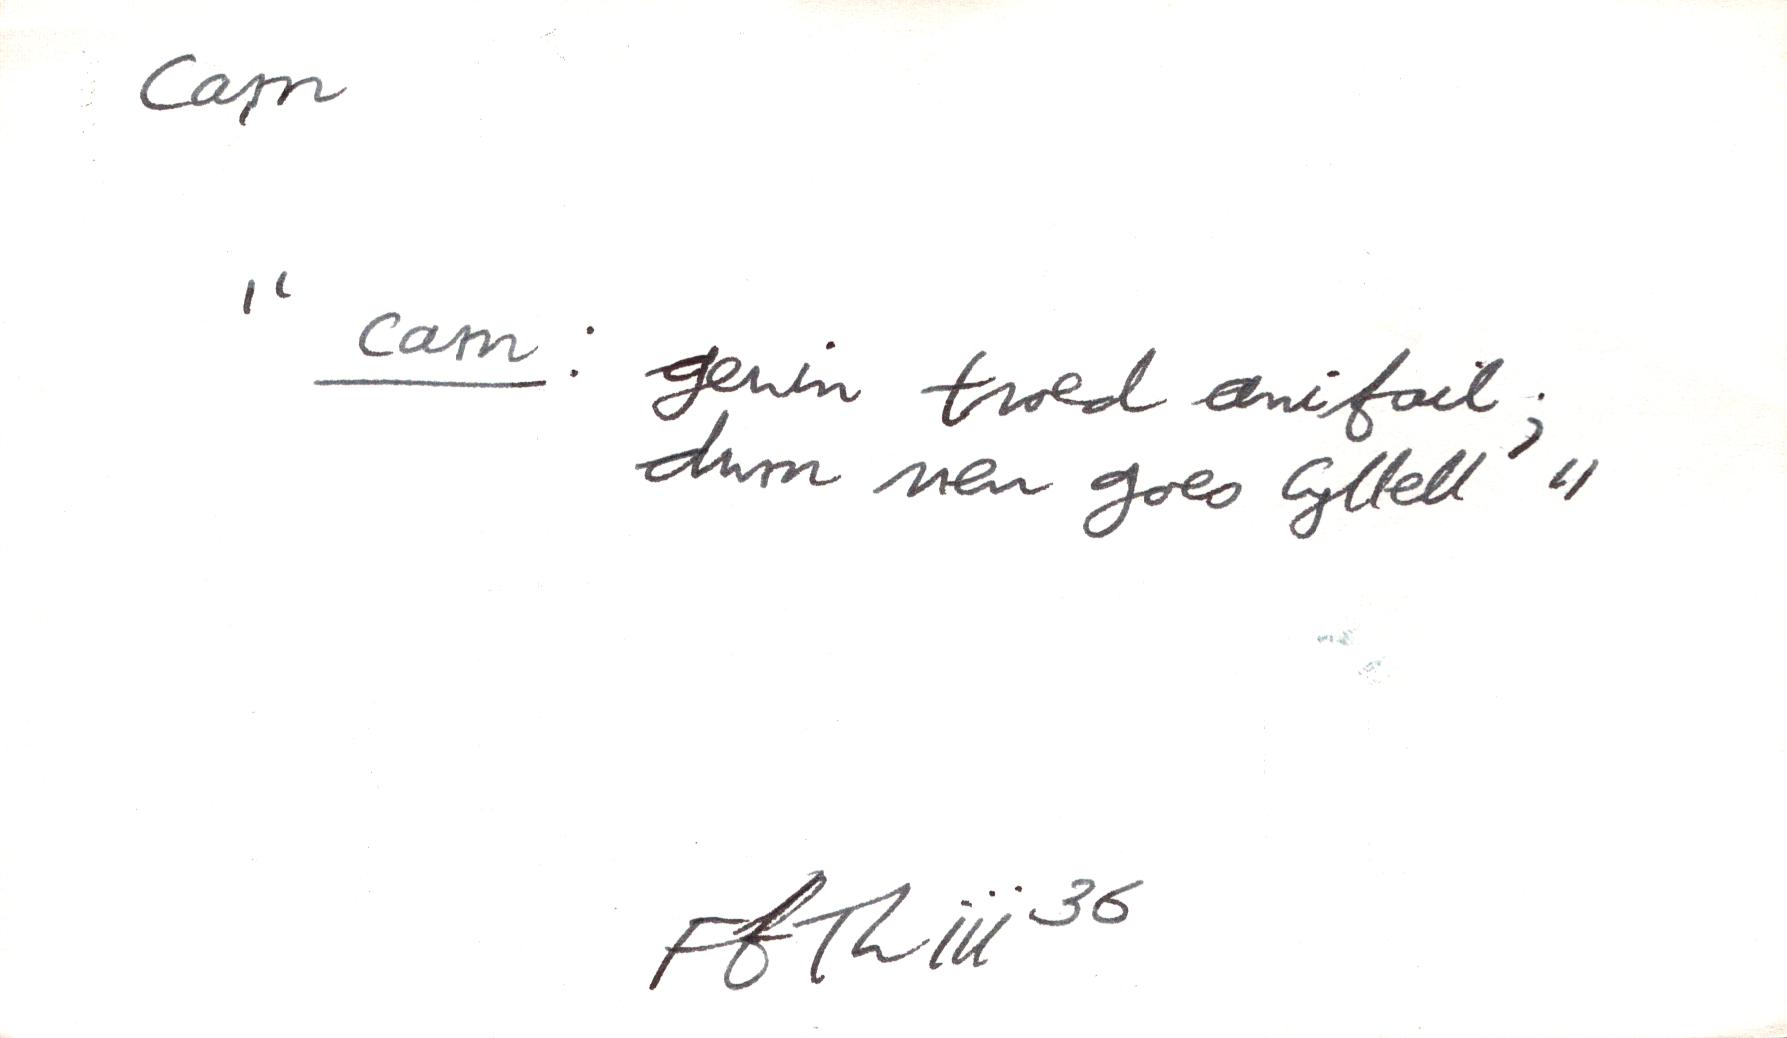 Carn
" carn : gewin troed anifail;
dwrn neu goes cyllell' "
Ff Th iii 36